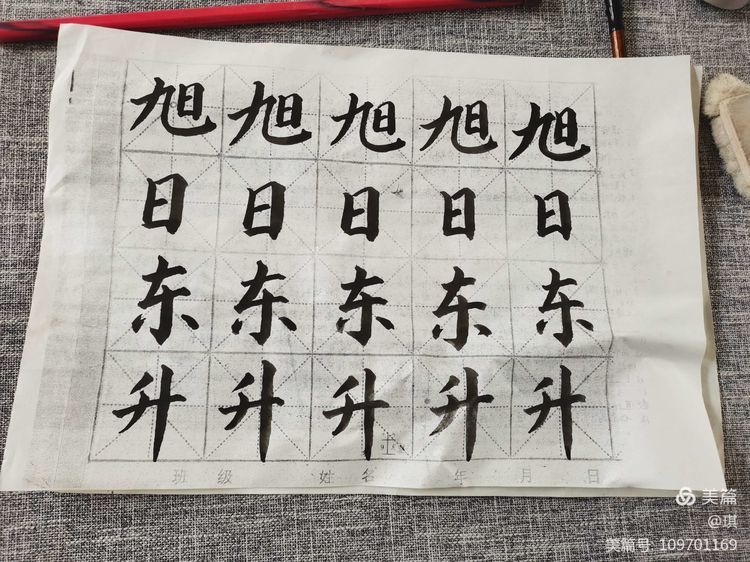 旭旭旭旭旭
日日日日日
东东东东东
升升升升升
班级 姓名 年 月 日
美篇
@琪
美篇号 109701169